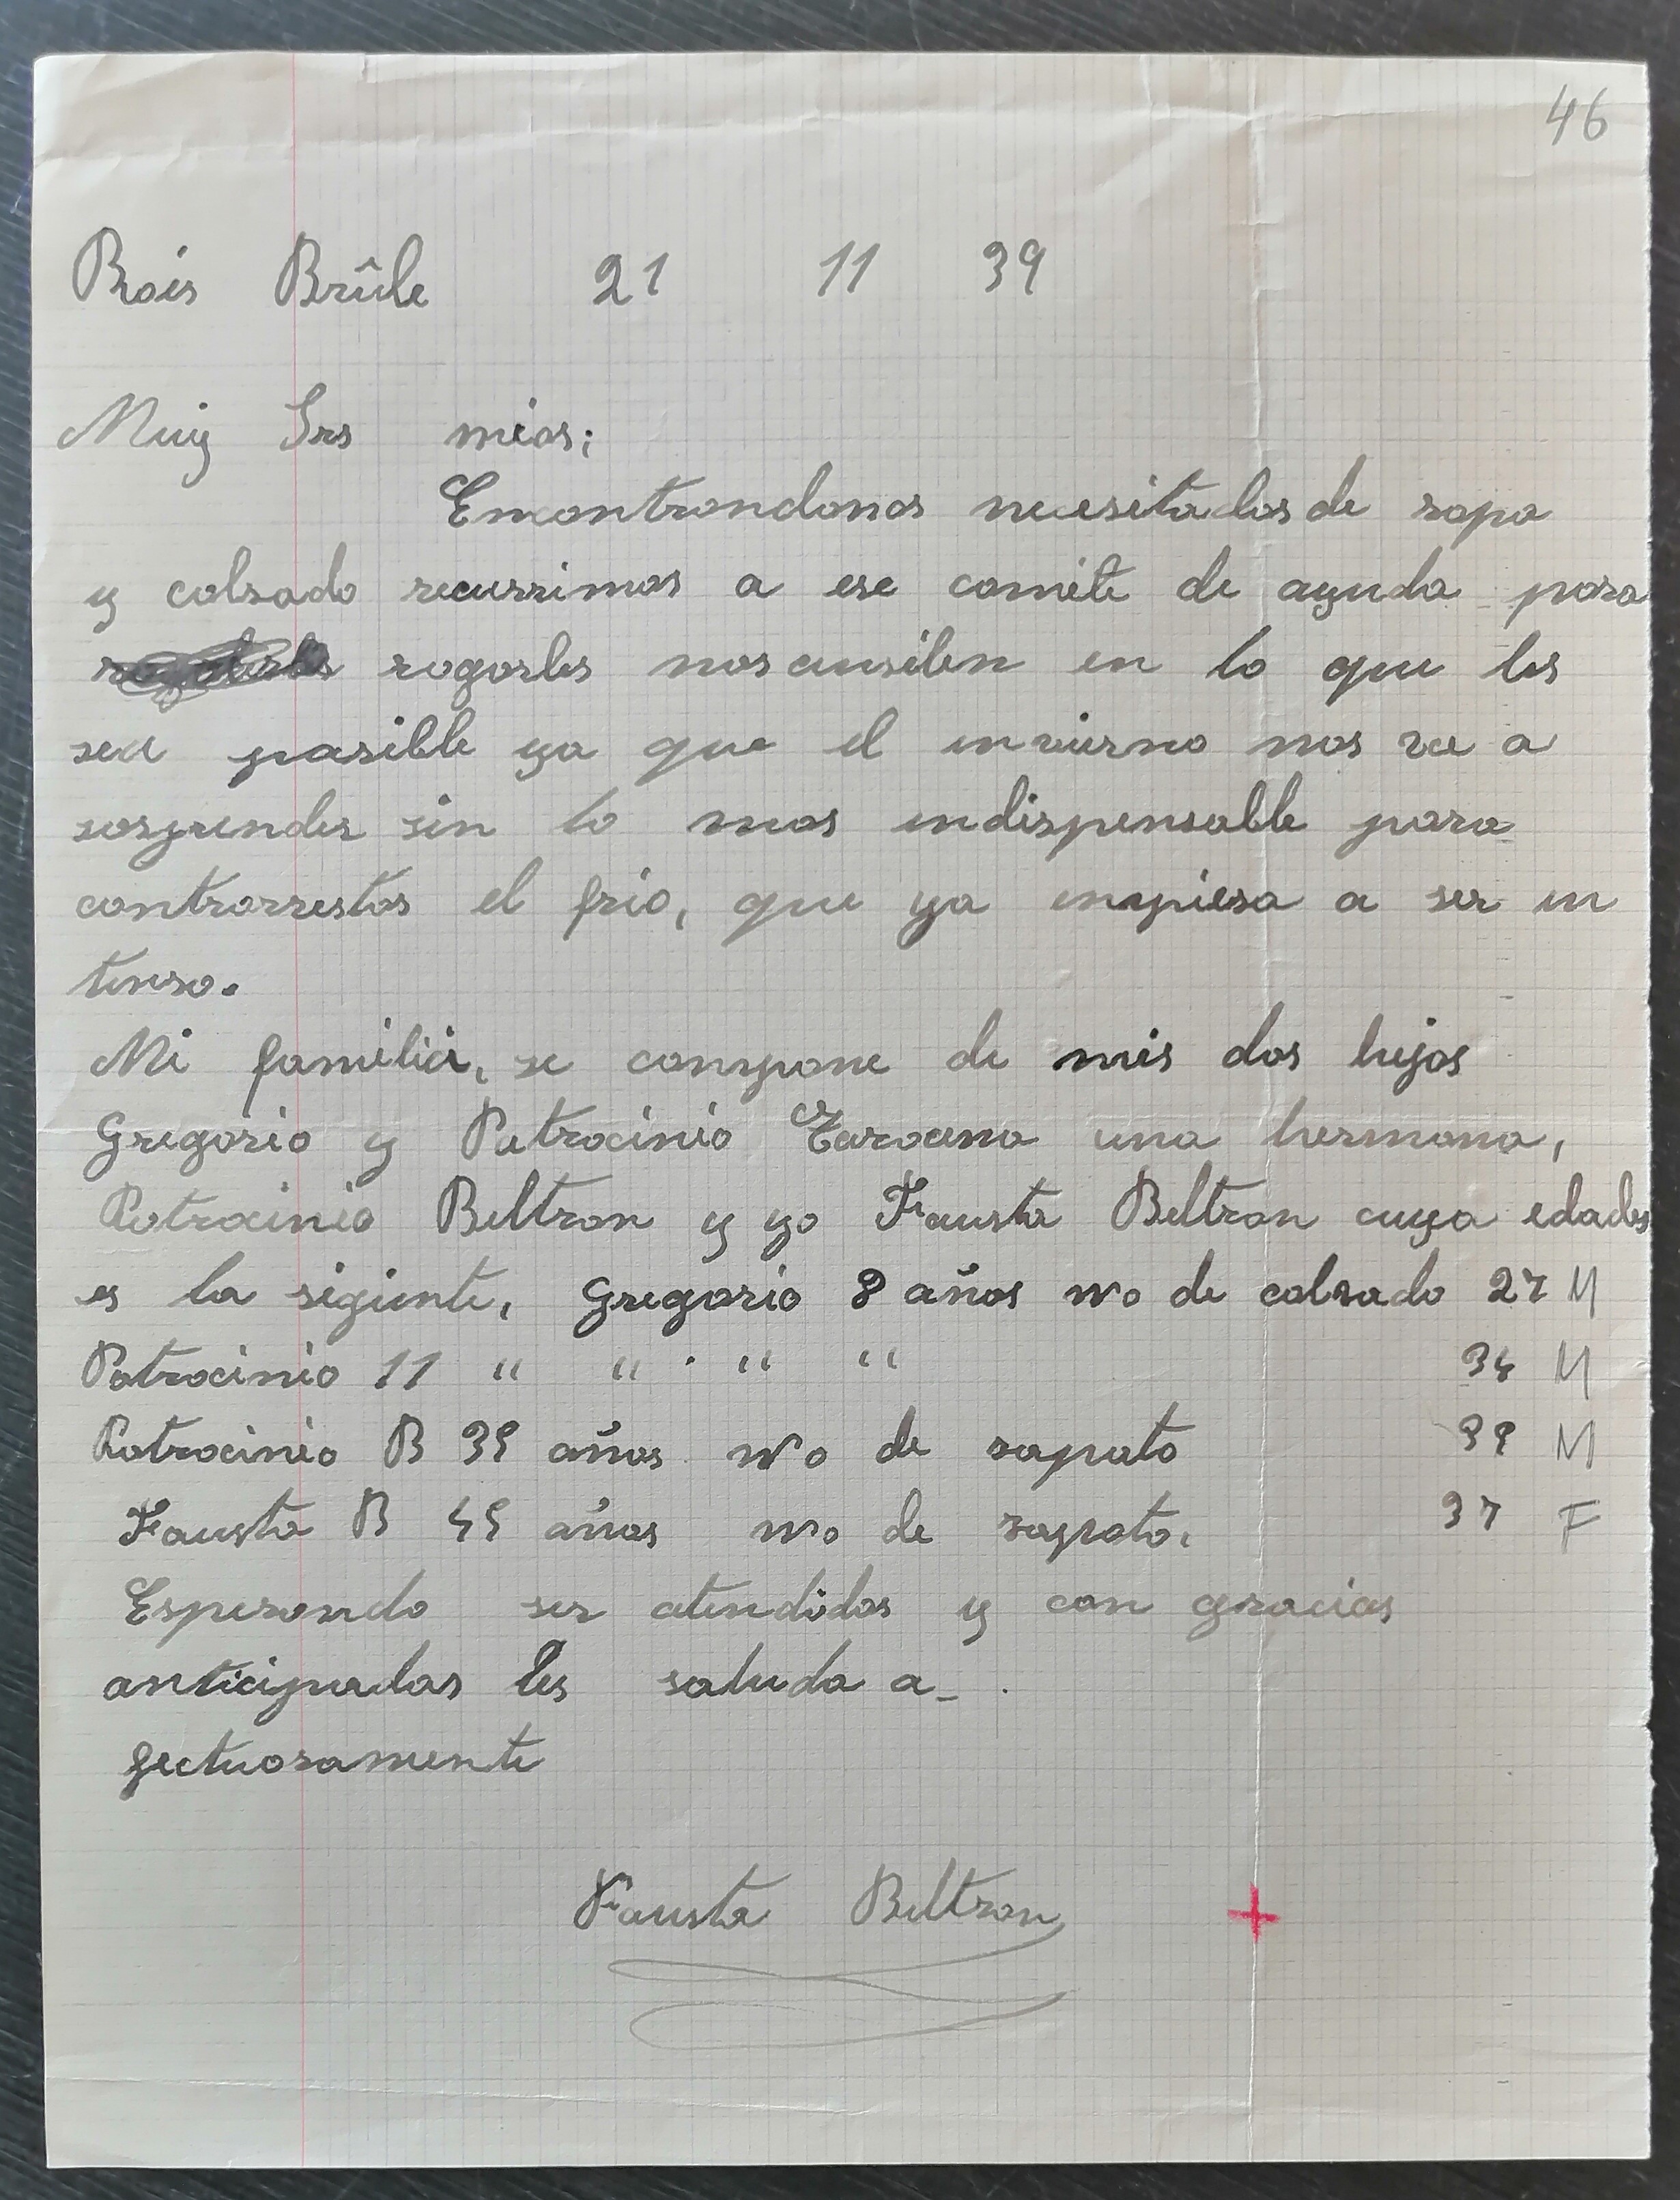 46
Bois Brûle 21 11 39
Muy Srs mios;
Encontrandonos necesitados de ropa
y calsado recurrimos a ese comite de ayuda para
rogarles nos ausilen en lo que les
sea posible ya que el invierno nos va a
sosprender sin lo mas indispensable para
contrarrestar el frio, que ya empiesa a ser in
tenso.
Mi familia, se compone de mis dos hijos
Gregorio y Patrocinio una hermana,
Patrocinio Beltran y yo Fausta Beltran cuya edades
es la sigiente, Gregorio 8 años No de calsado 27 M
Patrocinio 11 " " " " 34 M
Patrocinio B 39 años No de sapato 39 M
Fausta B 45 años No de sapato, 37 F
Esperando ser atendidos y con gracias
anticipadas les saluda a-
fectuosamente
Fausta Beltran